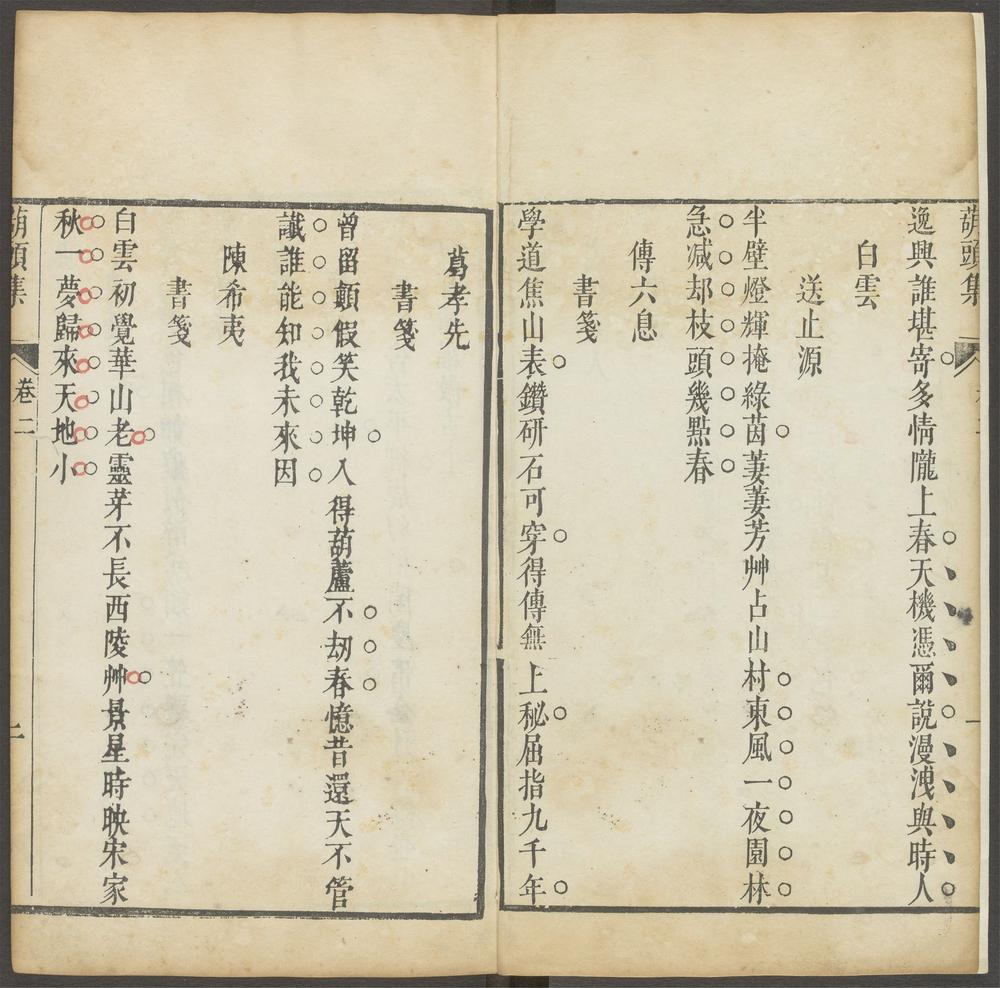 葫頭集
逸興誰堪寄多情隴上春天機憑爾說漫洩與時人
白雲
送止源
半壁燈輝掩綠茵萋萋芳艸占山村東風一夜園林
急减却枝頭幾點春
傳六息
書箋
學道焦山表鑽研石可穿得傳無上秘屈指九千年
葛孝先
書箋
曾留顛假笑乾坤入得葫蘆不刼春憶昔還天不管
讖誰能知我未來因
陳希夷
書箋
白雲初覺華山老靈芽不長西陵艸景星時映宋家
秋一夢歸來天地小
葫頭集
卷二
二